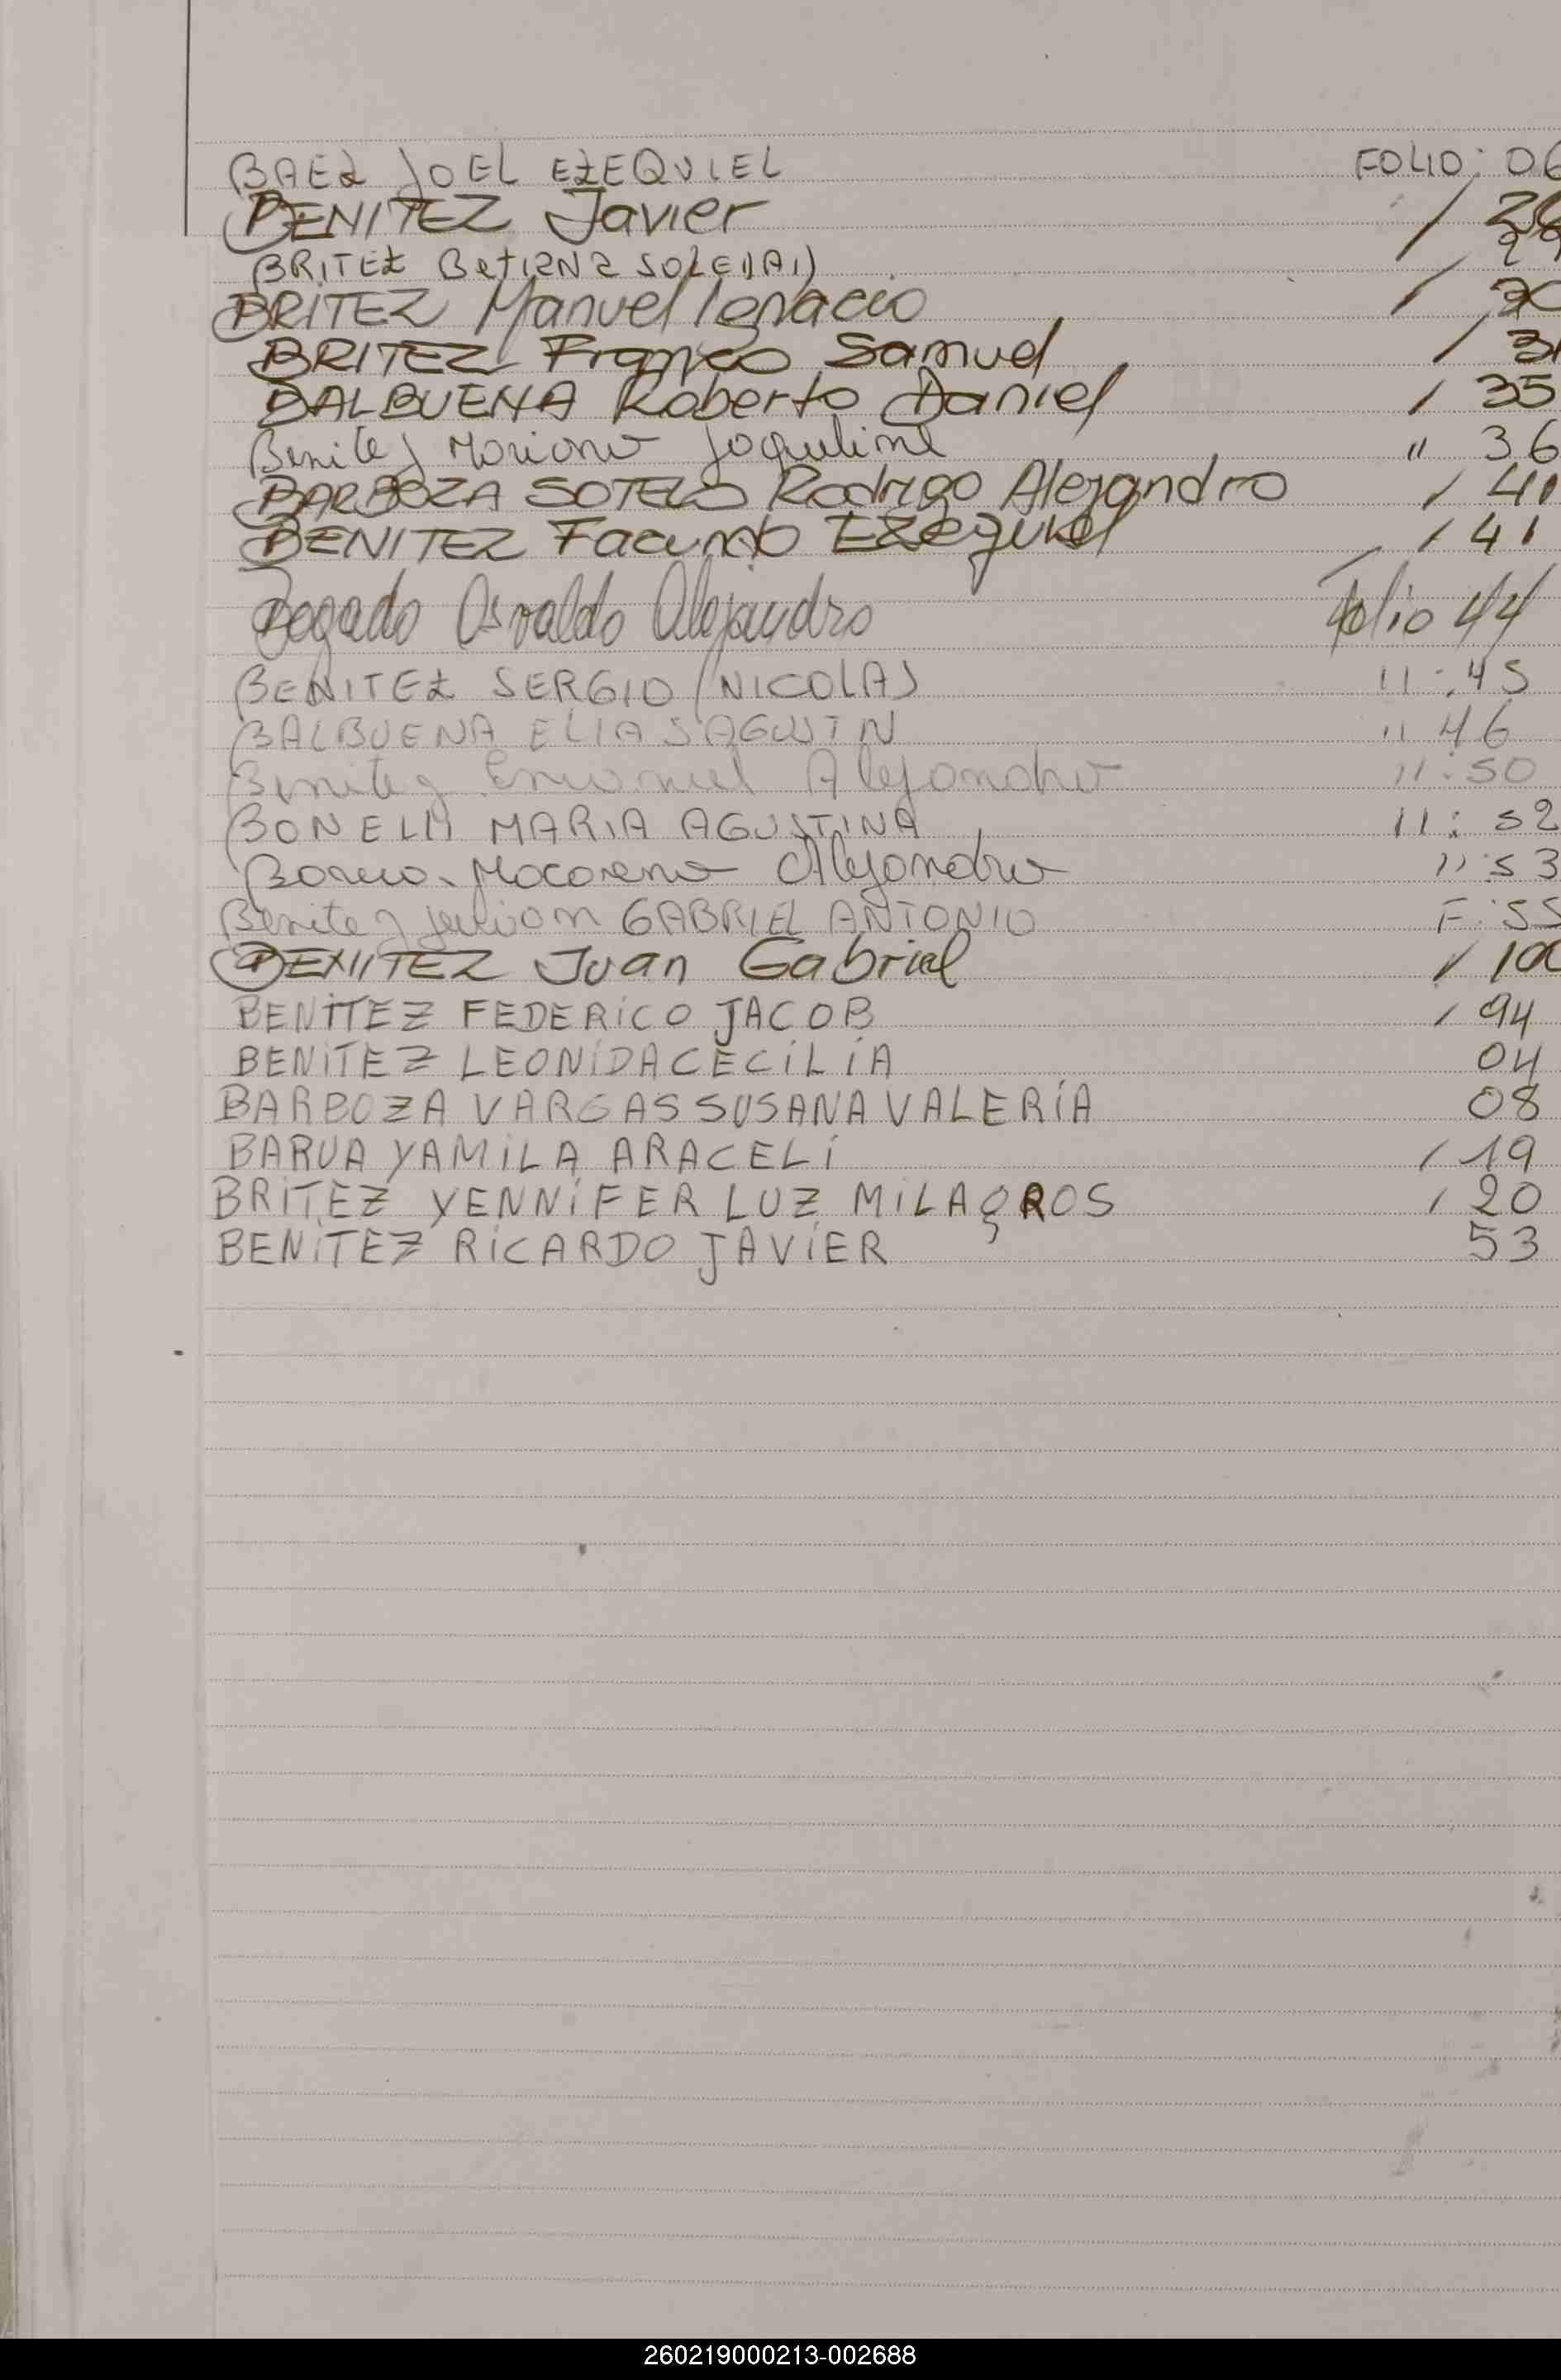 BAEZ JOEL EZEQUIEL FOLIO: 06
BENITEZ Javier /
BRITEZ Betiana SOLEDAD
BRITEZ Manuel Ignacio /
BRITEZ Franco Samuel / 31
BALBUENA Roberto Daniel / 35
Benitez Mariana Jaqueline " 36
BARBOZA SOTELO Rodrigo Alejandro / 41
BENITEZ Facundo Ezequiel / 41
Bogado Osvaldo Alejandro Folio 44
BENITEZ SERGIO NICOLAS 11:45
BALBUENA ELIAS AGUSTIN 11 46
Benitez Emanuel Alejandro 11:50
BONELLI MARIA AGUSTINA 11: 52
Macarena Alejandra 11:53
Benitez GABRIEL ANTONIO F:55
BENITEZ Juan Gabriel / 100
BENITEZ FEDERICO JACOB / 94
BENITEZ LEONIDA CECILIA 04
BARBOZA VARGAS SUSANA VALERÍA 08
BARUA YAMILA ARACELI / 19
BRITEZ YENNIFER LUZ MILAGROS / 20
BENITEZ RICARDO JAVIER 53
260219000213-002688